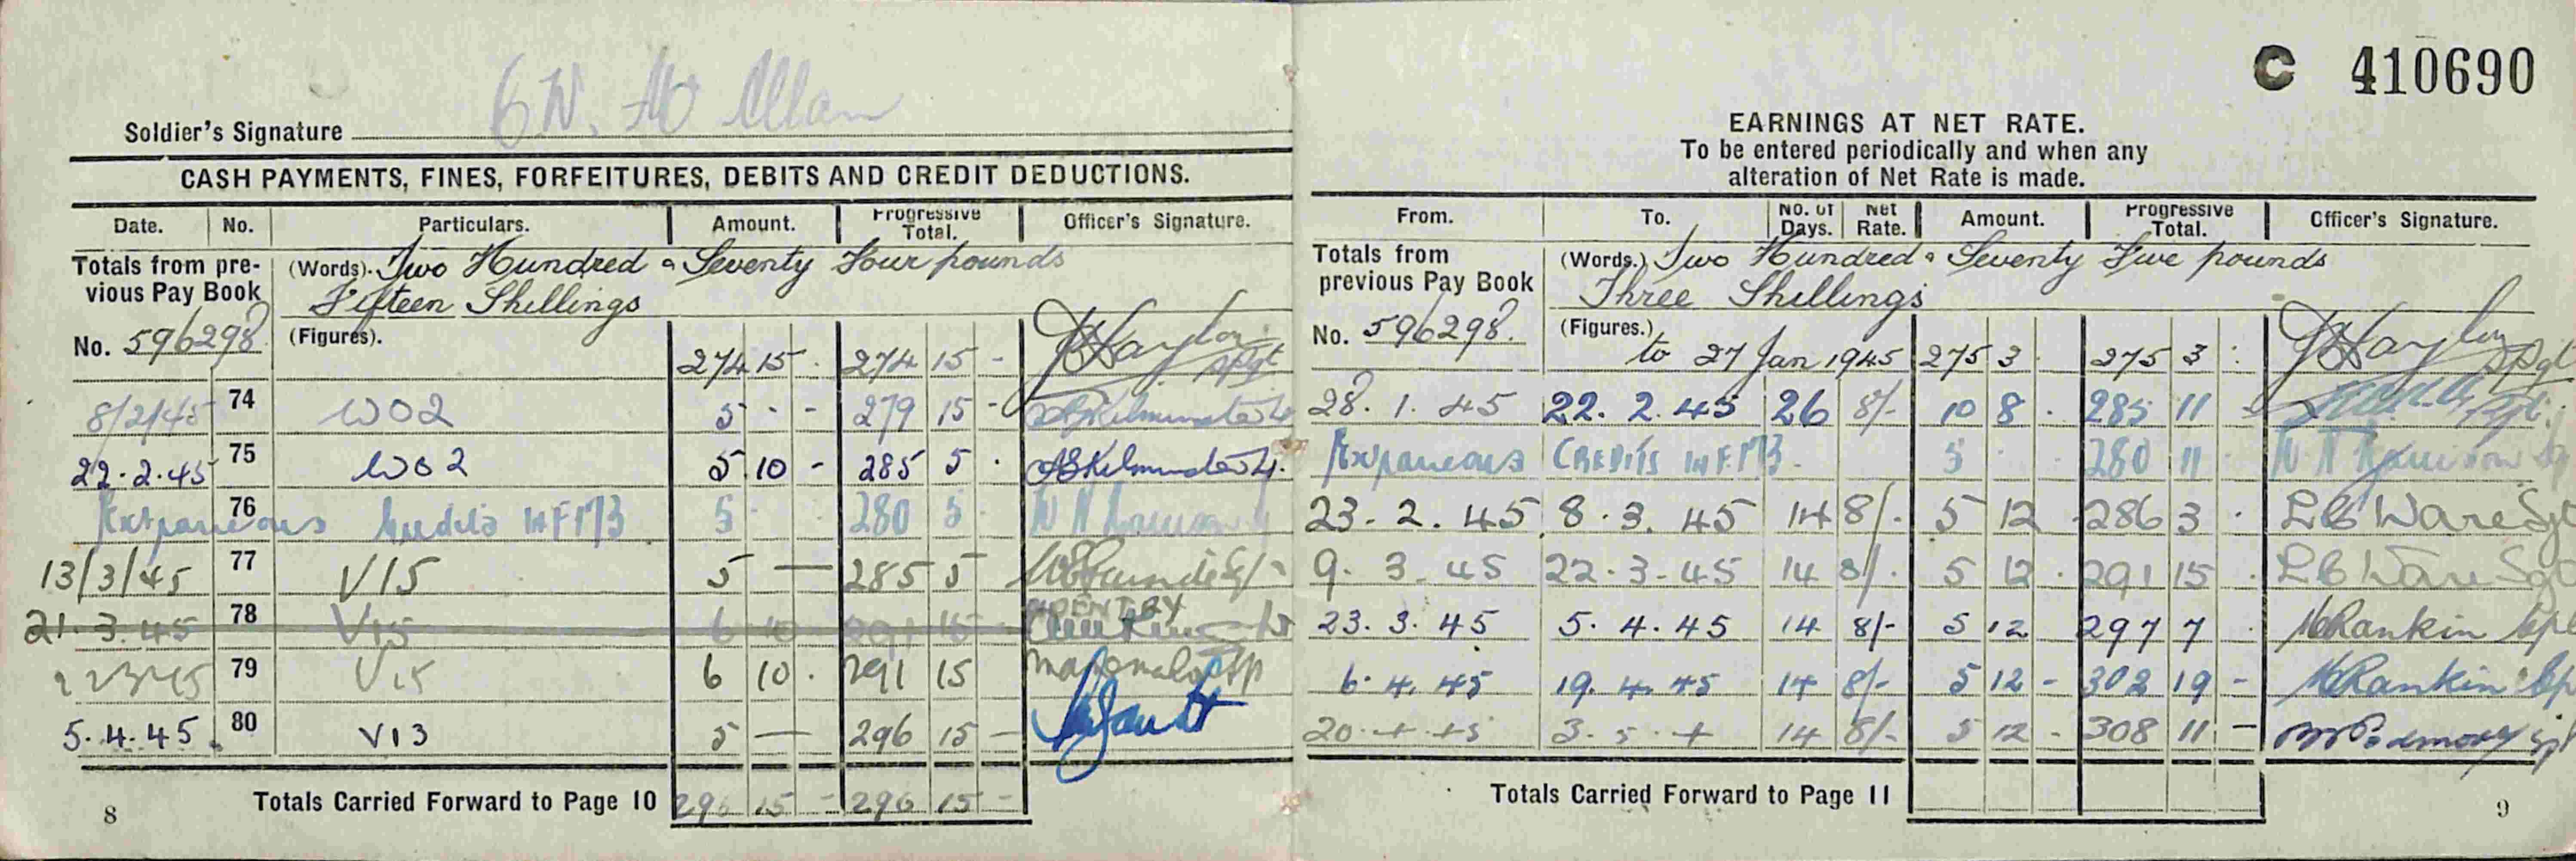 C 410690
Soldier's Signature
CASH PAYMENTS, FINES, FORFEITURES, DEBITS AND CREDIT DEDUCTIONS.
Date. No. Particulars. Amount. Progressive Total. Officer's Signature.
Totals from pre- (Words). Two Hundred & Seventy Four pounds
vious Pay Book Fifteen Shillings
No. 596298 (Figures). 274 15 - 274 15 -
8/2/45 74 WO2 5 - - 279 15 -
22.2.45 75 WO2 5 10 - 285 5 .
76 Extraneous Credits 5 280 5
13/3/45 77 V15 5 — 285 5 -
21.3.45 78 V15 6 10 291 15
79 V15 6 10 . 291 15
5.4.45 80 V13 5 — 296 15 -
Totals Carried Forward to Page 10 296 15 - 296 15 -
8
EARNINGS AT NET RATE.
To be entered periodically and when any
alteration of Net Rate is made.
From. To. No. of Days. Net Rate. Amount. Progressive Total. Officer's Signature.
Totals from (Words.) Two Hundred & Seventy Five pounds
previous Pay Book Three Shillings
No. 596298. (Figures.) to 27 Jan 1945 275 3 . 275 3 :
28.1.45 22.2.45 26 8/- 10 8 . 285 11 -
Extraneous Credits 5 280 11
23.2.45 8.3.45 14 8/- 5 12 . 286 3 . Ware Sgt
9.3.45 22.3.45 14 8/- 5 12 . 291 15 . Ware Sgt
23.3.45 5.4.45 14 8/- 5 12 297 7 . Rankin Cpl
6.4.45 19.4.45 14 8/- 5 12 - 302 19 - Rankin Cpl
20.4.45 3.5.4 14 8/- 5 12 - 308 11 -
Totals Carried Forward to Page 11
9